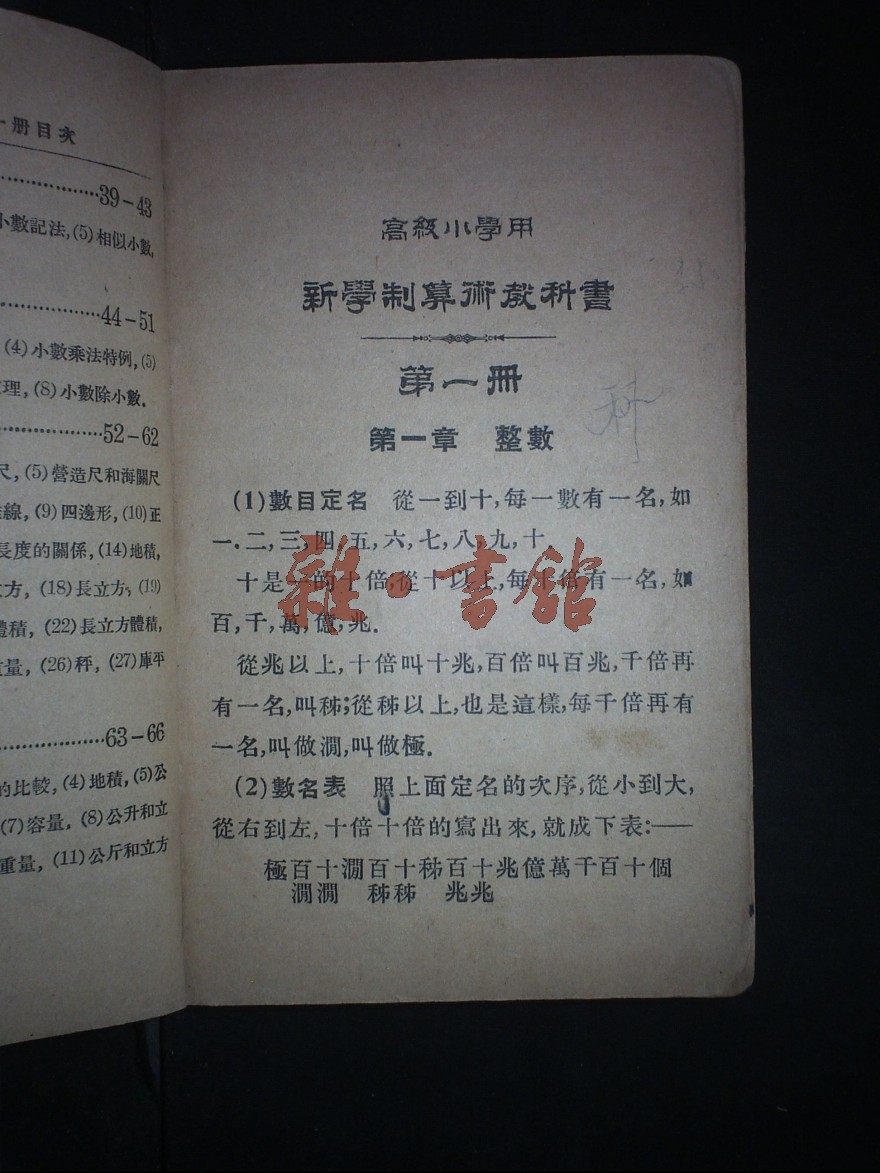 册目次
39－43
小數記法,(5)相似小數,
44－51
(4)小數乘法特例,(5)
理,(8)小數除小數.
52－62
尺,(5)營造尺和海關尺
線,(9)四邊形,(10)正
長度的關係,(14)地積,
方,(18)長立方,(19)
體積,(22)長立方體積,
重量,(26)秤,(27)庫平
63－66
的比較,(4)地積,(5)公
(7)容量,(8)公升和立
重量,(11)公斤和立方
高級小學用
新學制算術教科書
第一冊
第一章 整數
(1)數目定名 從一到十,每一數有一名,如
一,二,三,四,五,六,七,八,九,十.
十是一的十倍;從十以上,每十倍有一名,如
百,千,萬,億,兆.
從兆以上,十倍叫十兆,百倍叫百兆,千倍再
有一名,叫秭;從秭以上,也是這樣,每千倍再有
一名,叫做澗,叫做極.
(2)數名表 照上面定名的次序,從小到大,
從右到左,十倍十倍的寫出來,就成下表:——
極百十澗百十秭百十兆億萬千百十個
澗澗 秭秭 兆兆
雜·書館